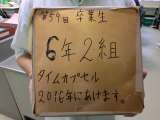 第59回 卒業生
6年2組
タイムカプセル
2016年にあけます。